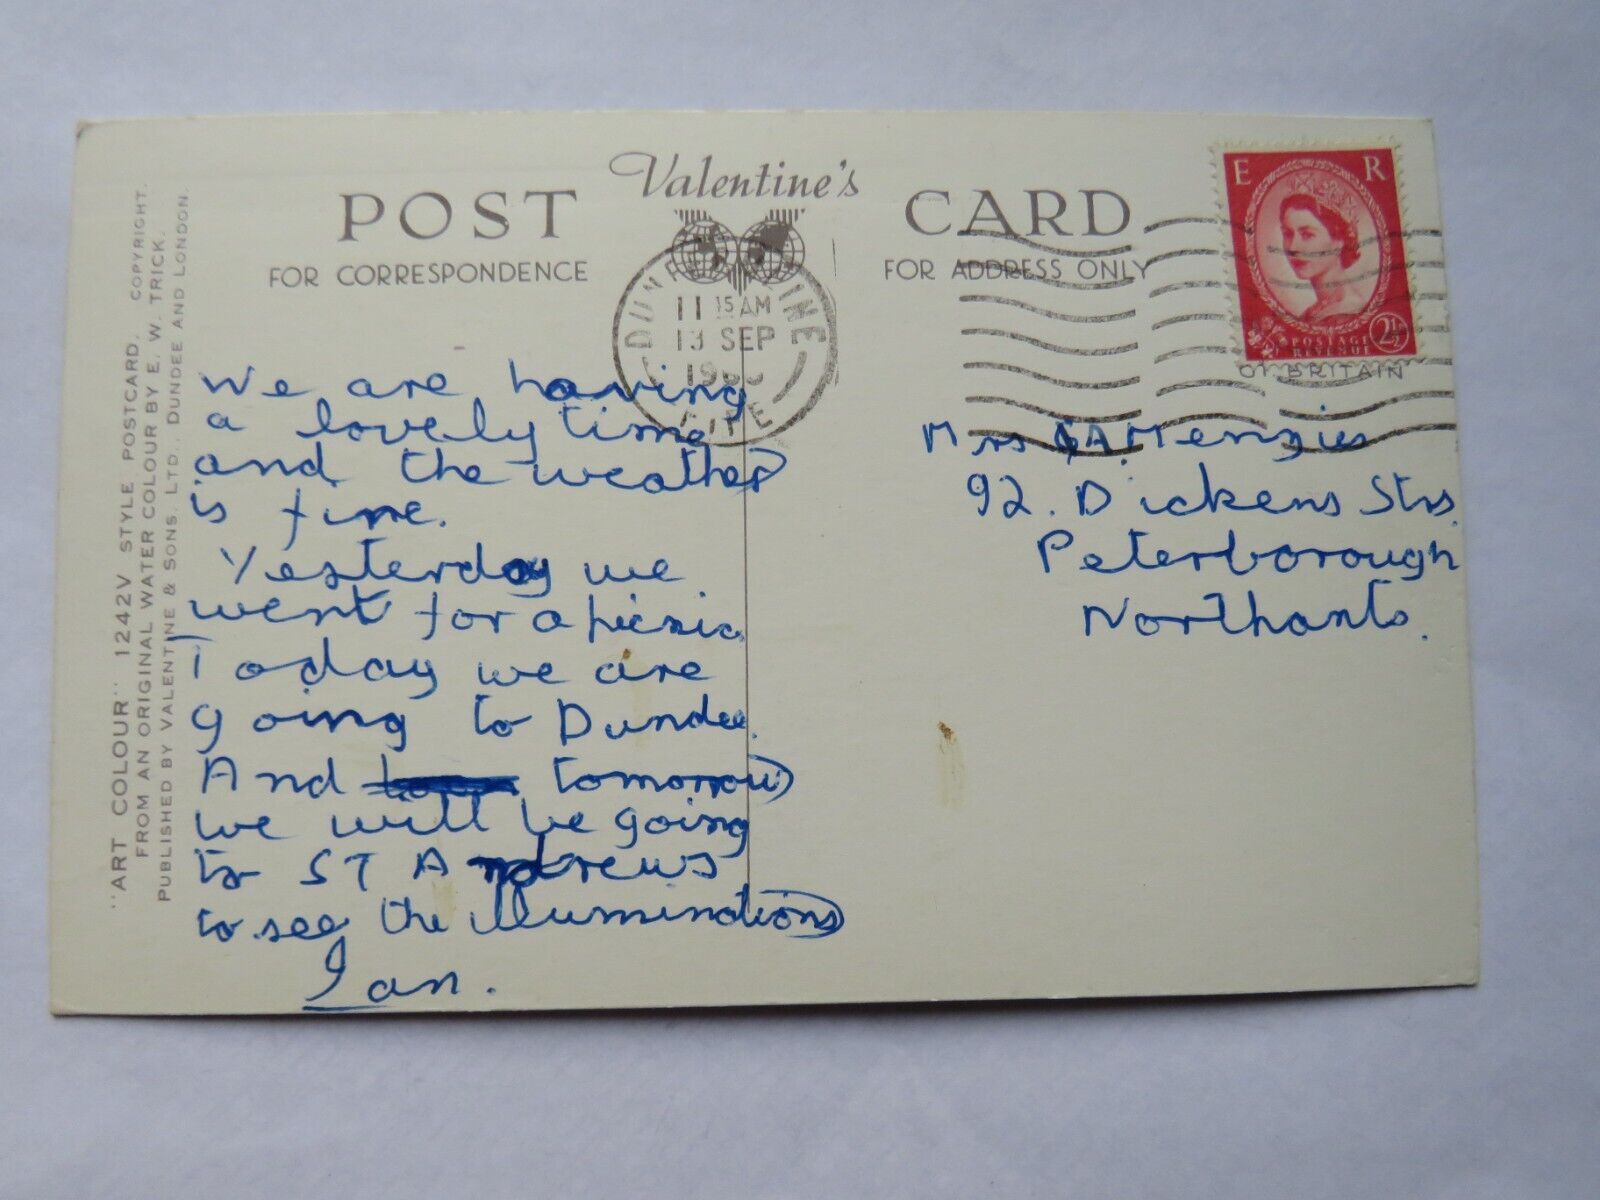 Valentine's
POST CARD
FOR CORRESPONDENCE
FOR ADDRESS ONLY
E R
POSTAGE
REVENUE
2½
OF BRITAIN
DUNFERMLINE
11 15 AM
13 SEP
FIFE
We are having
a lovely time
and the weather
is fine.
Yesterday we
went for a picnic.
Today we are
going to Dundee.
And tomorrow
we will be going
to ST Andrews
to see the illuminations
Ian.
Mrs A. Menzies
92. Dickens Str.
Peterborough
Northants.
"ART COLOUR" 1242V STYLE POSTCARD. COPYRIGHT.
FROM AN ORIGINAL WATER COLOUR BY E. W. TRICK.
PUBLISHED BY VALENTINE & SONS, LTD., DUNDEE AND LONDON.